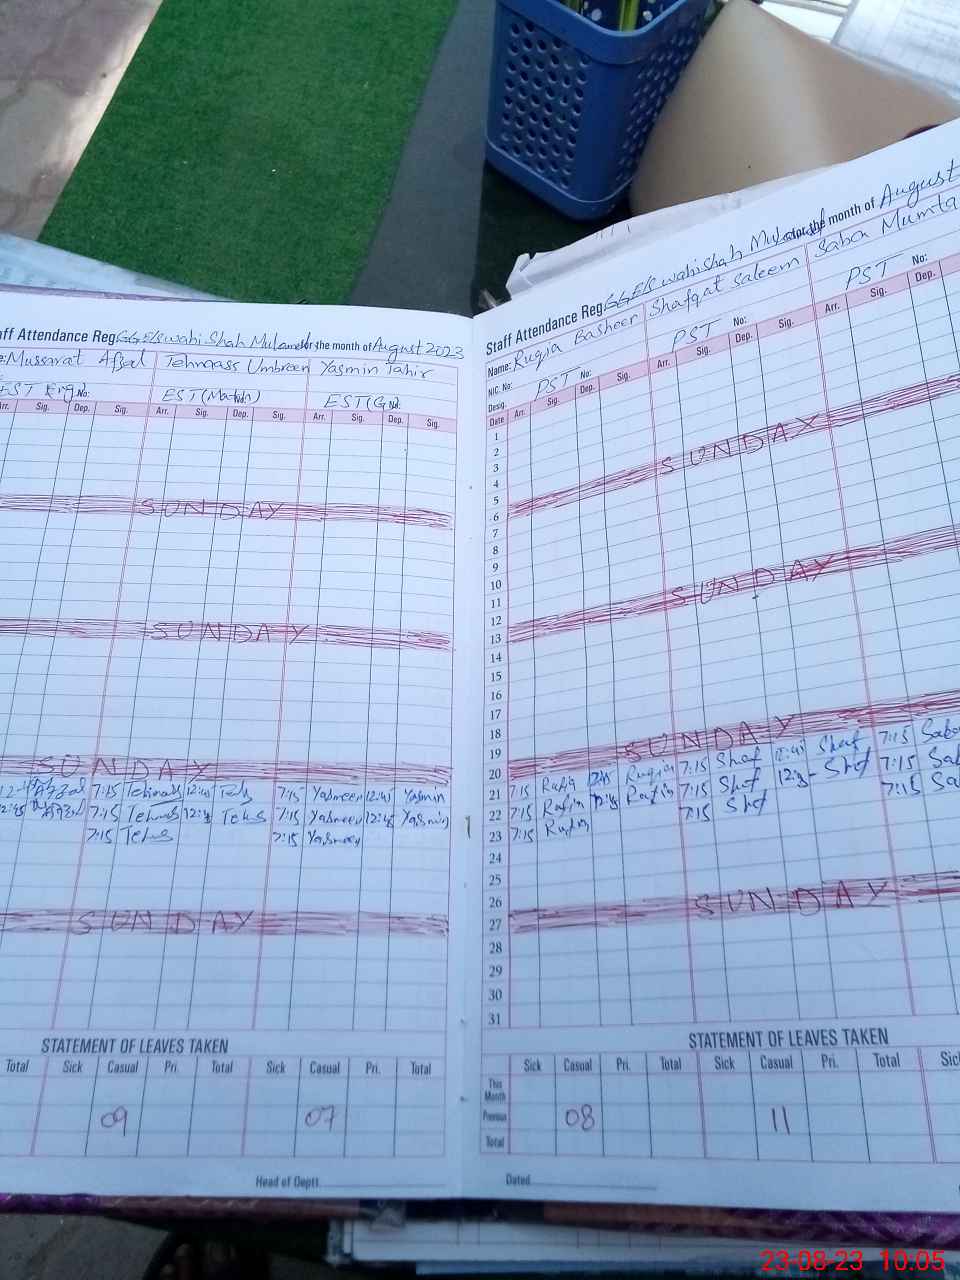 aff Attendance Reg. GGE/S wahi Shah Mulanel for the month of August 2023
e: Mussarat Afzal Tehmass Umbreen Yasmin Tahir
EST Eng No: EST (Math) EST (G No:
Arr. Sig. Dep. Sig. Arr. Sig. Dep. Sig. Arr. Sig. Dep. Sig.
SUNDAY
SUNDAY
SUNDAY
Afzal 7:15 12:45 7:15 Yasmeen 12:45 Yasmin
12:45 Afzal 7:15 7:15 Yasmeen 12:45 Yasmin
7:15 7:15 Yasmeen
SUNDAY
STATEMENT OF LEAVES TAKEN
Total Sick Casual Pri. Total Sick Casual Pri. Total
09 07
Head of Deptt.
Staff Attendance Reg. GGE/S wahi Shah for the month of August
Name: Ruqia Basheer Shafqat Saleem Saba Mumta
NIC. No: No: No:
Desig. PST PST PST
Date Arr. Sig. Dep. Sig. Arr. Sig. Dep. Sig. Arr. Sig. Dep.
1
2
3
4
5
6 SUNDAY
7
8
9
10
11
12
13 SUNDAY
14
15
16
17
18
19
20 SUNDAY
21 7:15 Ruqia 12:45 Ruqia 7:15 Shaf 12:45 Shaf 7:15 Saba
22 7:15 7:15 Shaf Shaf 7:15 Sab
23 7:15 7:15 Shaf 7:15 Sa
24
25
26
27 SUNDAY
28
29
30
31
STATEMENT OF LEAVES TAKEN
Sick Casual Pri. Total Sick Casual Pri. Total Sic
This Month
Previous 08 11
Total
Dated
23-08-23 10:05